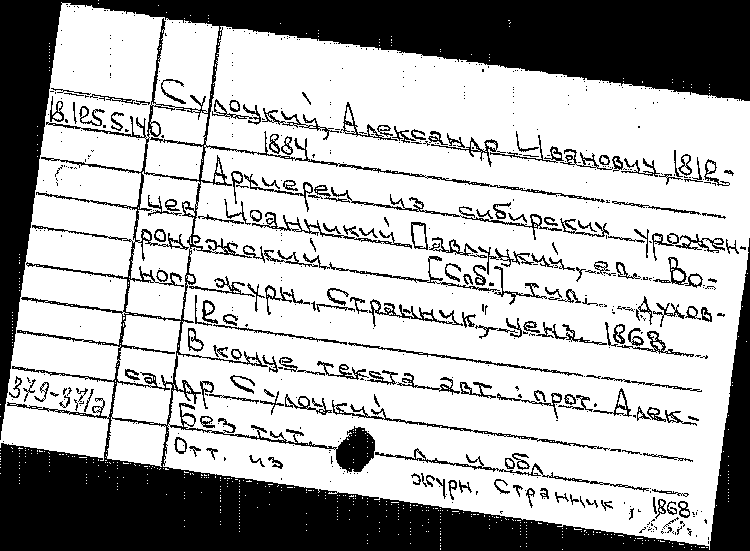 Сулоцкий, Александр Иванович, 1812-
18.125.5.140.
1884.
Архиереи из сибирских урожен-
цев. Иоанникий Павлуцкий, еп. Во-
ронежский. [Спб.], тип. духов-
ного журн. "Странник", ценз. 1868.
12 с.
В конце текста авт.: прот. Алек-
сандр Сулоцкий
379-371а
Без тит. л. и обл.
Отт. из журн. Странник, 1868.